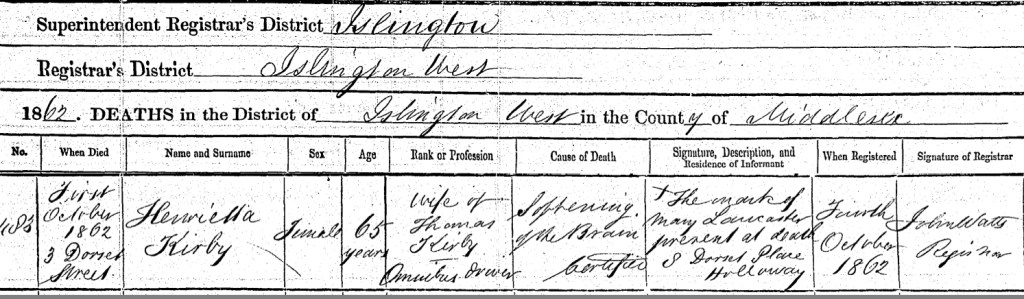 Superintendent Registrar's District Islington
Registrar's District Islington West
1862. DEATHS in the District of Islington West in the County of Middlesex
No. When Died Name and Surname Sex Age Rank or Profession Cause of Death Signature, Description, and Residence of Informant When Registered Signature of Registrar
First October 1862 3 Dorset Street.
Henrietta Kirby
Female
65 years
Wife of Thomas Kirby Omnibus driver
Softening of the Brain Certified
+ The mark of Mary Lancaster present at death 8 Dorset Place Holloway
Fourth October 1862
John Watts Registrar